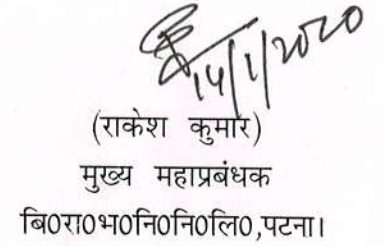 14/1/2020
(राकेश कुमार)
मुख्य महाप्रबंधक
बि0रा0भ0नि0नि0लि0,पटना।